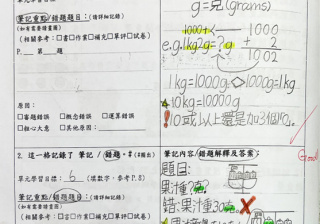 g=克(grams)
筆記重點/錯題題目：(請詳細記錄)
(如有需要請畫圖)
(相關參考：□書□作業□補充□單評□試卷)
P. 第 題
1000+2
1000
e.g. 1kg2g=?g
+ 2
1002
1kg=1000g 1000g=1kg
10kg=10000g
10或以上還是加3個0。
原因：
□審題錯誤 □概念錯誤 □運算錯誤
□粗心大意 □其他原因：
Good
2. 這一格記錄了 筆記 / 錯題
單元學習目標： 6 (填數字，參考 P.8)
筆記重點/錯題題目：(請詳細記錄)
(如有需要請畫圖)
(相關參考：□書□作業□補充□單評□試卷)
筆記內容/錯題解釋及答案：
題目：
果汁重?克。
錯：果汁重30克。